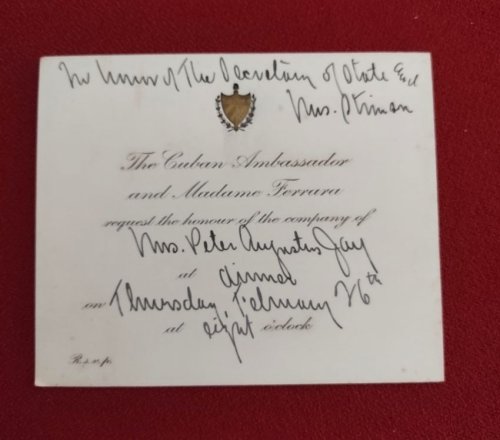 In honor of The Secretary of State and
Mrs. Stimson
The Cuban Ambassador
and Madame Ferrara
request the honour of the company of
Mrs. Peter Augustus Jay
at dinner
on Thursday, February 26th
at eight o'clock
R.s.v.p.